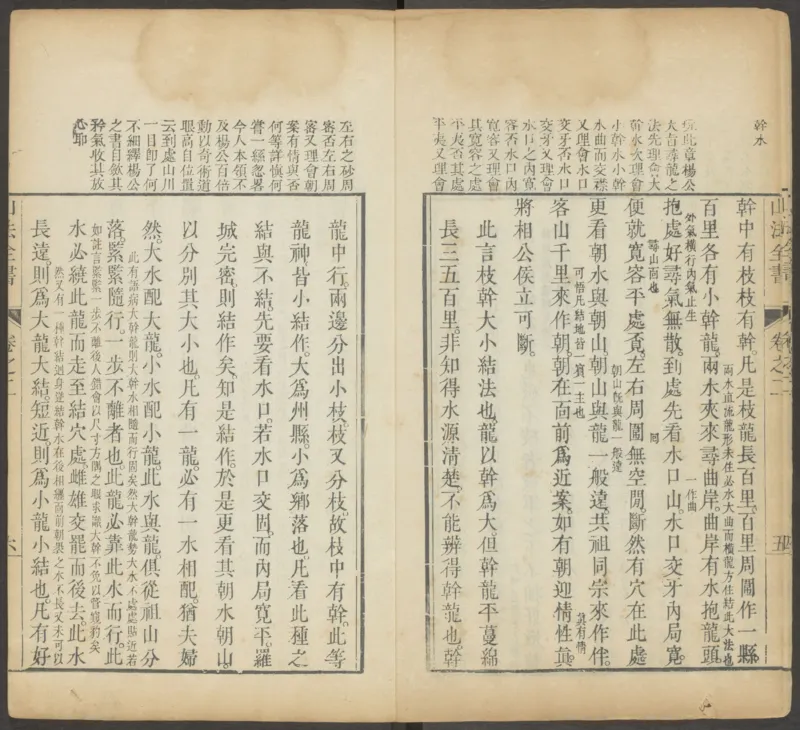 幹水
玩此章楊公
大旨尋龍之
法先理會大
幹水次理會
小幹水小幹
水曲而交襟
又理會水口
交牙否水口
交牙又理會
水口之內寬
容否水口內
寬容又理會
其寬容之處
平夷否其處
平夷又理會
山法全書
卷之二
五
幹中有枝枝有幹。凡是枝龍長百里。百里周圍作一縣。
兩水直流龍形未住必水大曲而橫龍方住結此大法也
百里各有小幹龍。兩水夾來尋曲岸。曲岸有水抱龍頭。
外氣橫行內氣止生
一作曲
抱處好尋氣無散。到處先看水口山。水口交牙內局寬。
尋山南也
同
便就寬容平處覔。左右周圍無空閒。斷然有穴在此處
朝山旣與龍一般遠
更看朝水與朝山。朝山與龍一般遠。共祖同宗來作伴。
可悟凡結地皆一賓一主也
客山千里來作朝。朝在面前爲近案。如有朝迎情性眞
眞有情
將相公侯立可斷。
此言枝幹大小結法也。龍以幹爲大。但幹龍平蔓綿
長三五百里。非知得水源清楚。不能辨得幹龍也。幹
左右之砂周
密否左右周
密又理會朝
案有情與否
何等詳慎何
嘗一絲忽畧
今人本領不
及楊公百倍
動以奇術道
眼高自位置
云到處山川
一目卽了何
不細繹楊公
之書自歛其
矜氣收其放
心耶
龍中行。兩邊分出小枝。枝又分枝。故枝中有幹。此等
龍神。皆小結作。大爲州縣。小爲鄉落也。凡看此種之
結與不結。先要看水口。若水口交固。而內局寬平。羅
城完密。則結作矣。知是結作。於是更看其朝水朝山。
以分別其大小也。凡有一龍。必有一水相配。猶夫婦
然。大水配大龍。小水配小龍。此水與龍。俱從祖山分
此有語病大幹龍則大幹水相隨而行固矣然大幹龍勢大水不處處貼近若
落。緊緊隨行。一步不離者也。此龍必靠此水而行。此
如註言緊緊一步不離後人錯會以尺寸方隅之暇求識大幹不免以管窺豹矣
水必繞此龍而走。至結穴處。雌雄交罷而後去。此水
然又有一種幹結廻身逆結幹水在後相纏而前朝養之水不長又未可以
長遠則爲大龍大結。短近則爲小龍小結也。凡有好
山法全書
卷之二
六